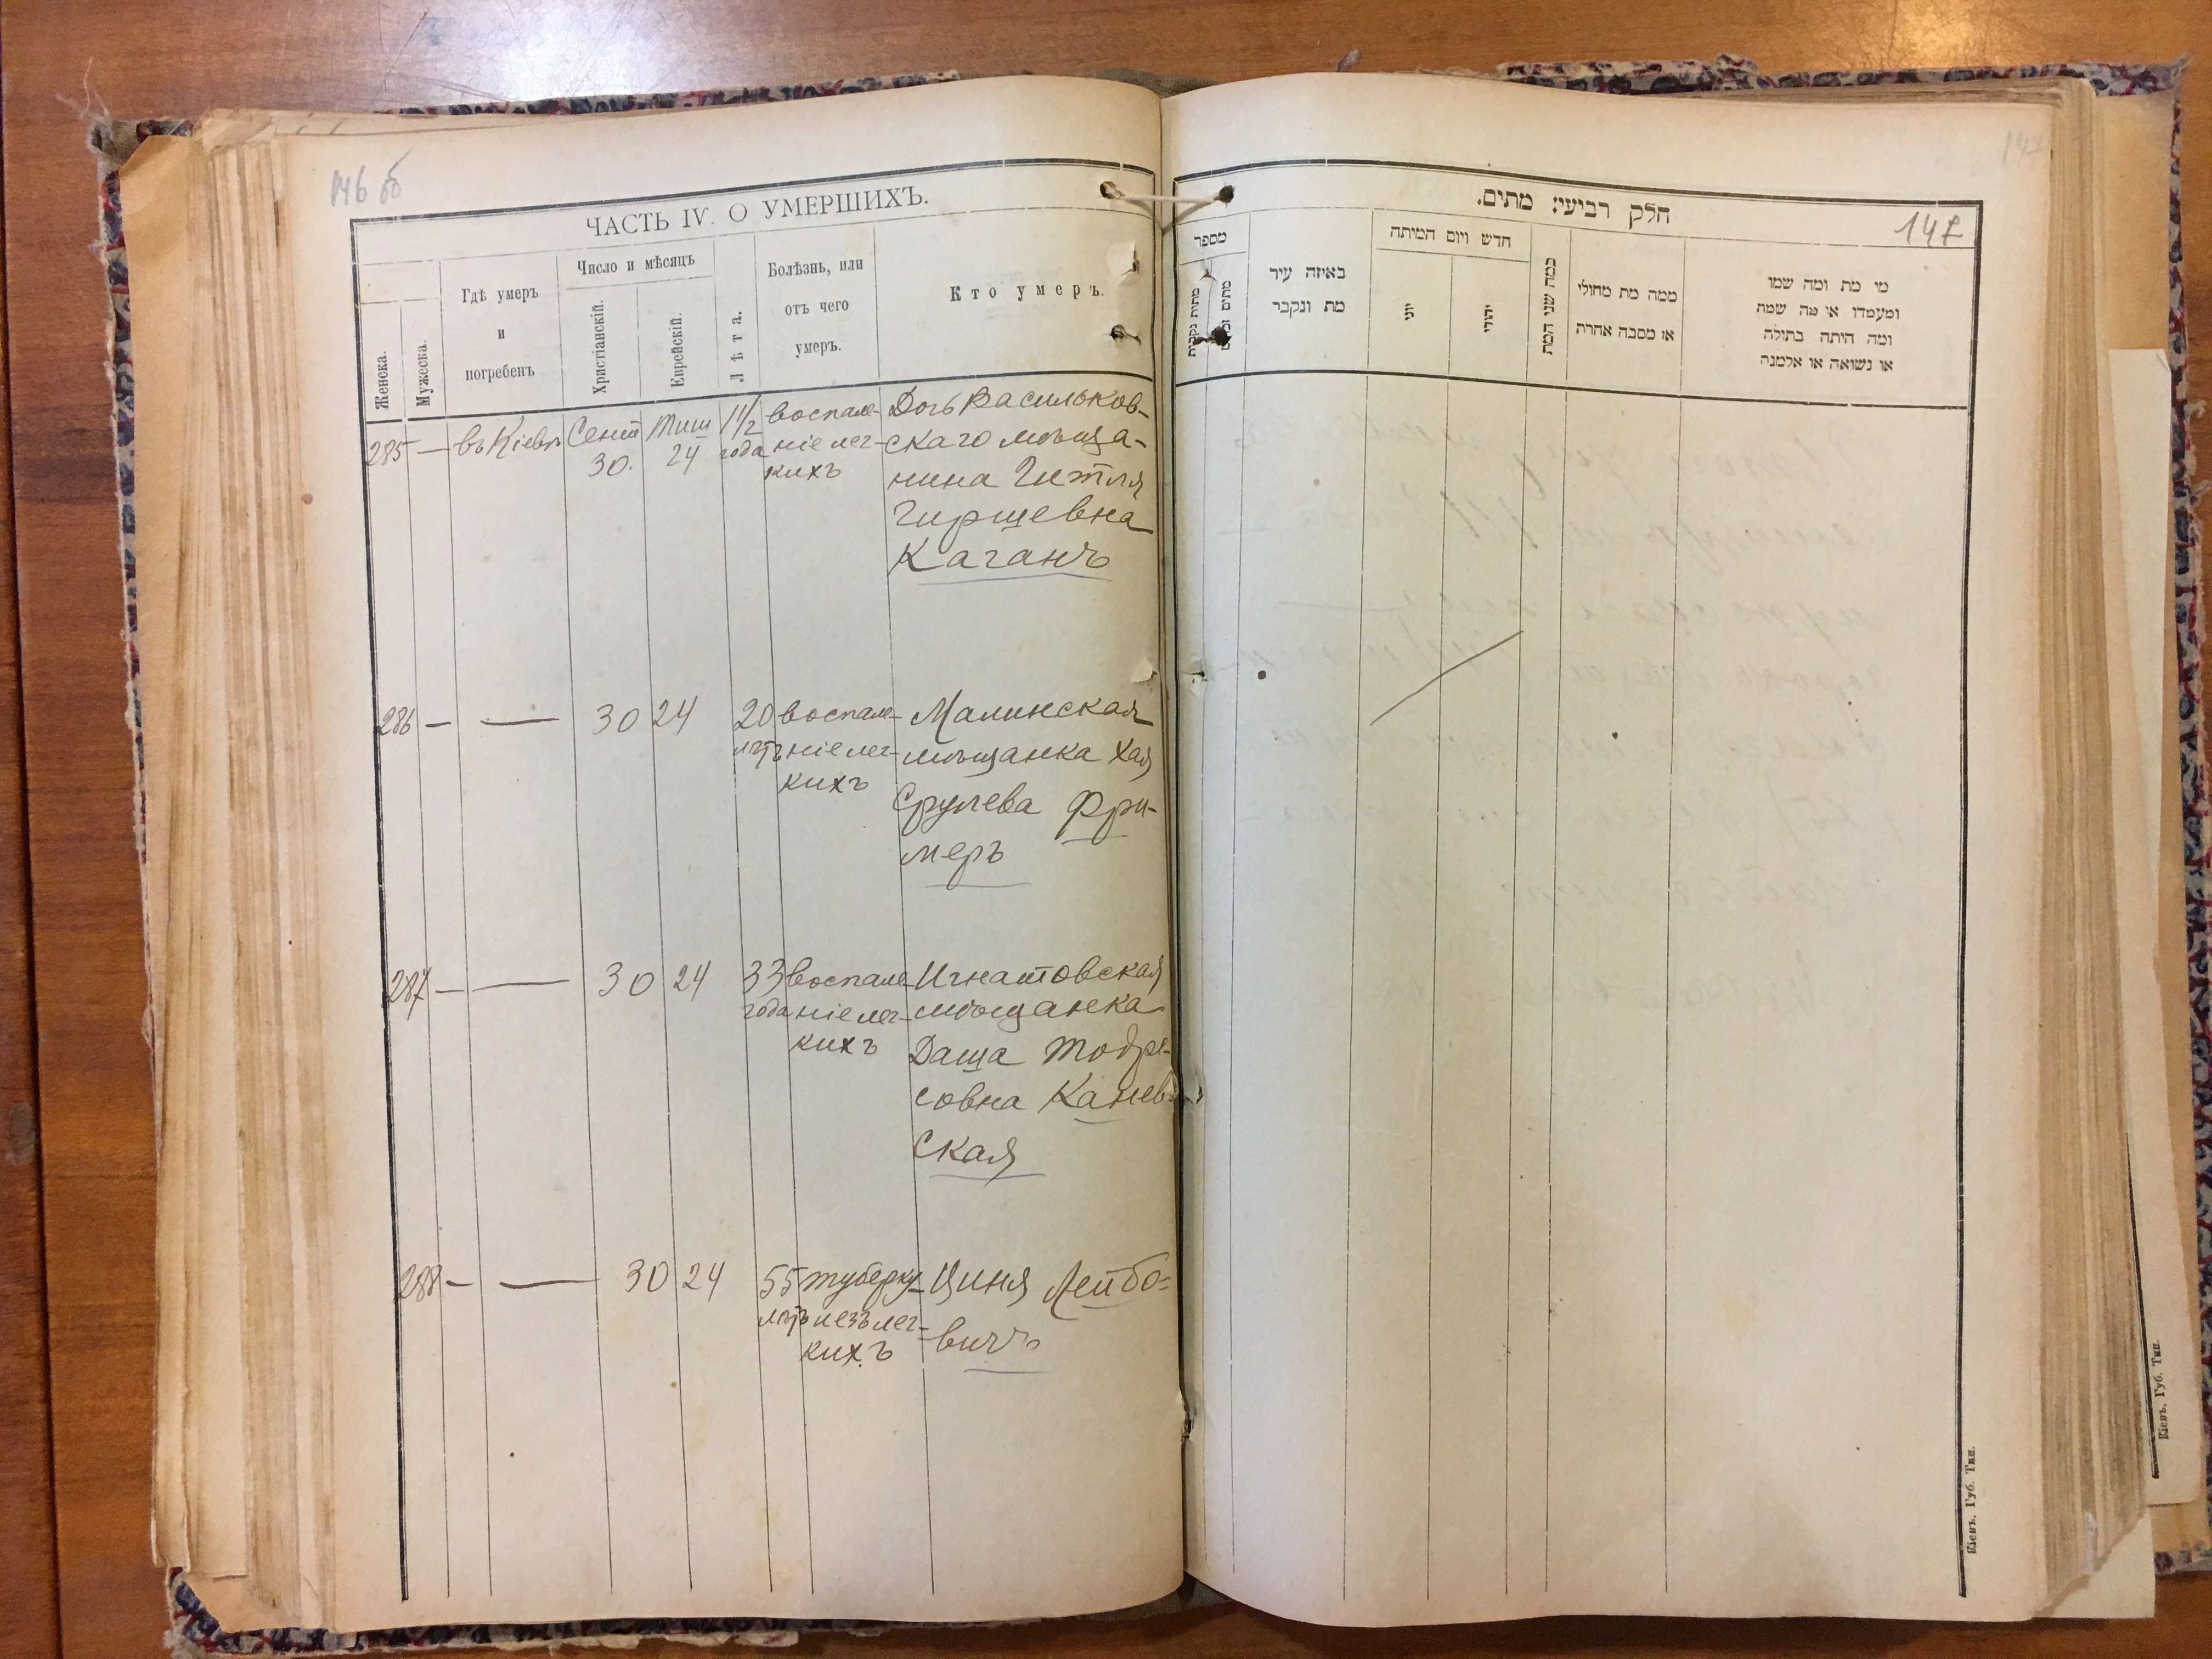 146 об
ЧАСТЬ IV. О УМЕРШИХЪ.
Женска.
Мужеска.
Гдѣ умеръ
и
погребенъ
Число и мѣсяцъ
Христіанскій.
Еврейскій.
Лѣта.
Болѣзнь, или
отъ чего
умеръ.
Кто умеръ.
285 — въ Кіевѣ Сент 30. Тиш 24 1 1/2 года
воспале-
ніе лег-
кихъ
Дочь Васильков-
скаго мѣща-
нина Гитля
Гиршевна
Каганъ
286 — — 30 24 20 лѣтъ
воспале-
ніе лег-
кихъ
Малинская
мѣщанка Хая
Срулева Фри-
меръ
287 — — 30 24 33 года
воспале-
ніе лег-
кихъ
Игнатовская
мѣщанка
Даша Тодре-
совна Канев-
ская
288 — — 30 24 55 лѣтъ
туберку-
лезъ лег-
кихъ
Циня Лейбо-
вичъ
147
חלק רביעי: מתים.
147
מספר
מתות נקבות
באיזה עיר
מת ונקבר
חדש ויום המיתה
יוני
יהודי
כמה שני המת
ממה מת מחולי
או מסבה אחרת
מי מת ומה שמו
ומעמדו או מה שמה
ומה היתה בתולה
או נשואה או אלמנה
Кіевъ. Губ. Тип.
Кіевъ. Губ. Тип.